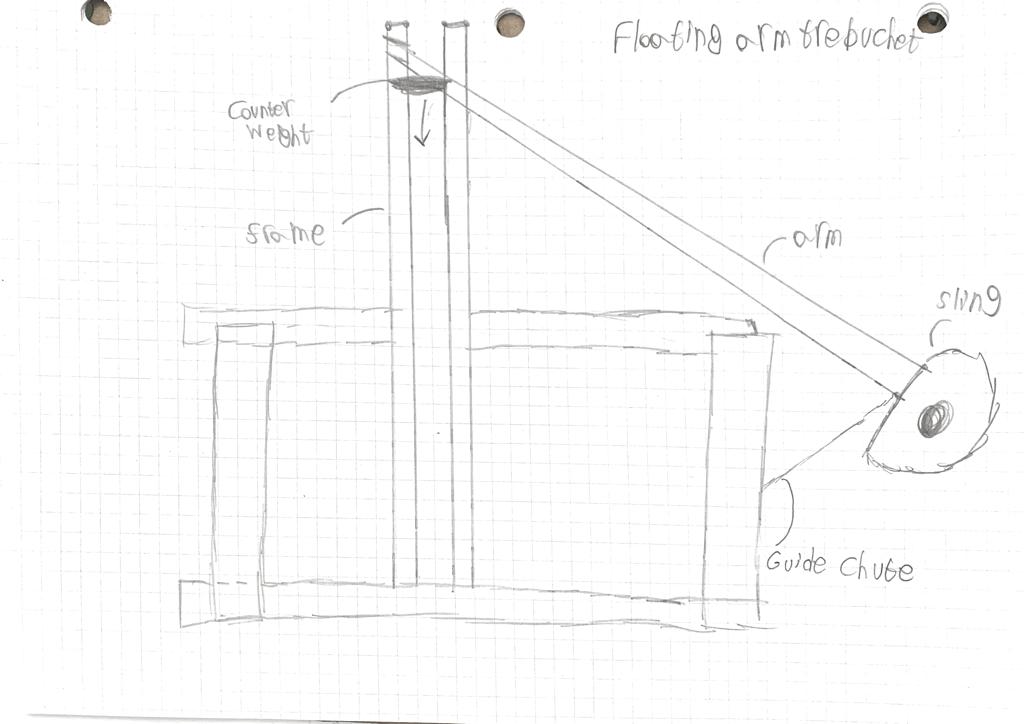 Floating arm trebuchet
Counter
Weight
frame
arm
sling
Guide Chute